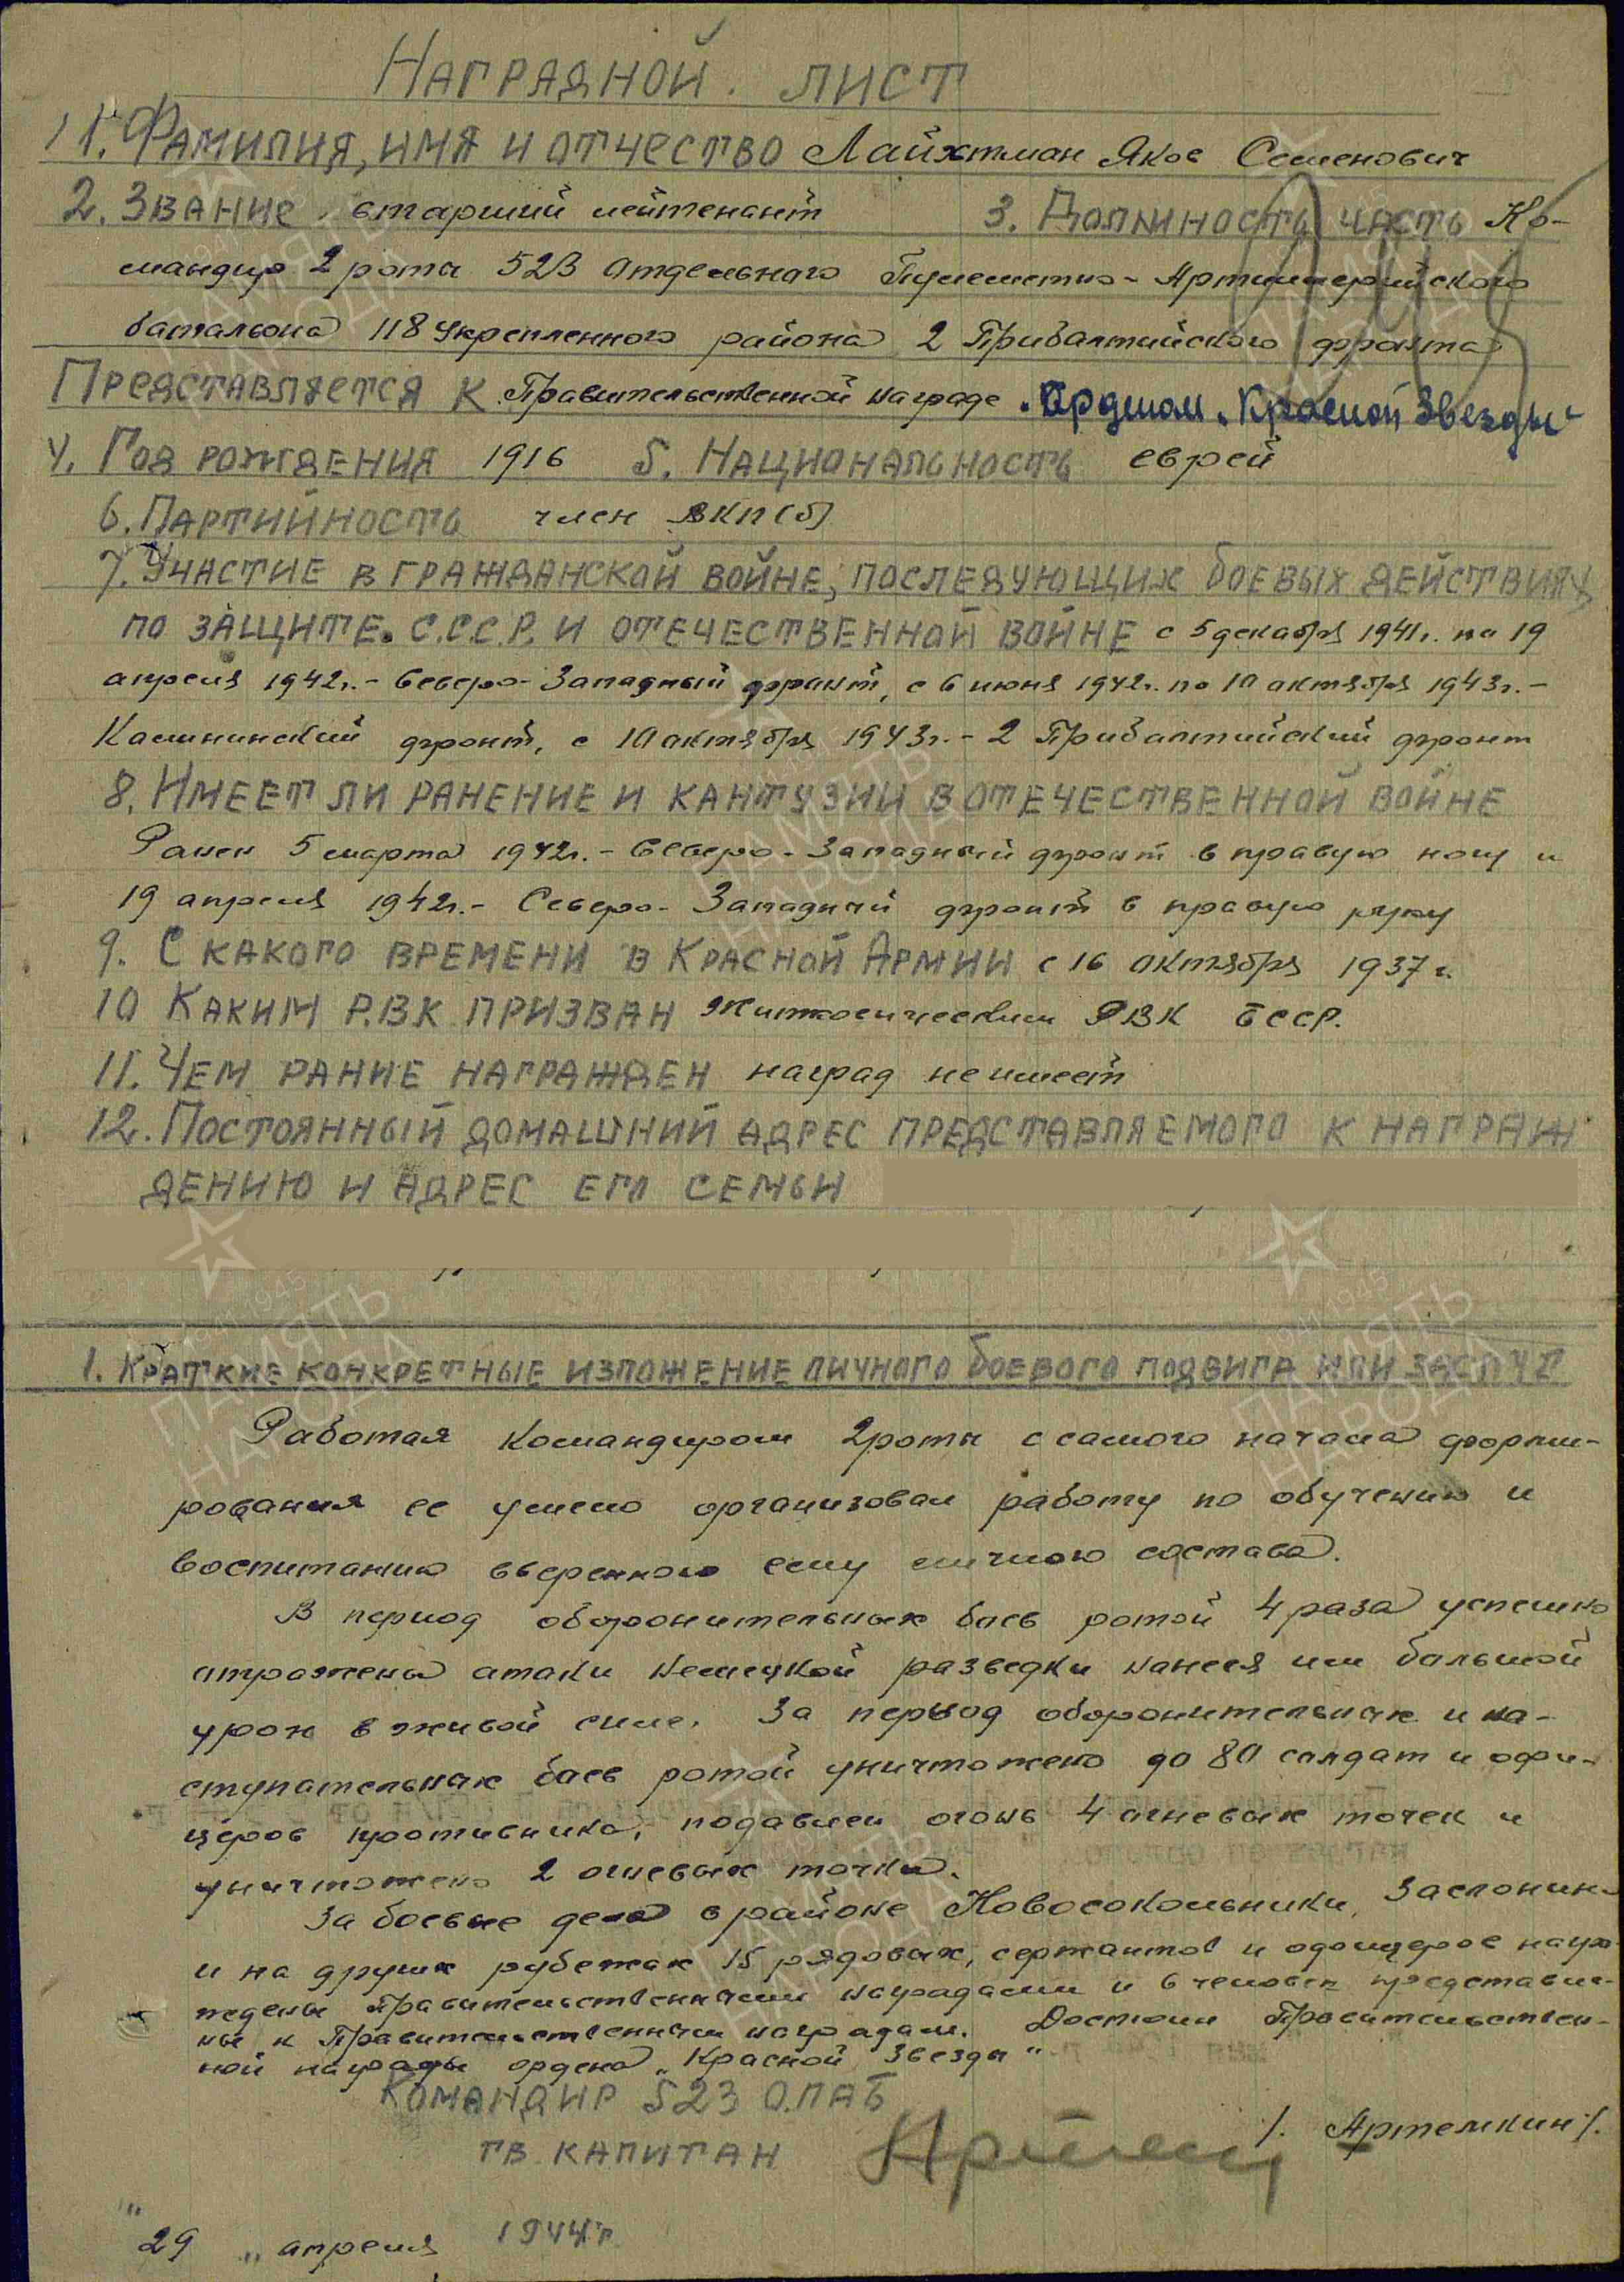 Наградной лист
1. Фамилия, имя и отчество Лайхтман Яков Семенович
2. Звание старший лейтенант 3. Должность часть Ко-
мандир 2 роты 523 Отдельного Пулеметно-Артиллерийского
батальона 118 укрепленного района 2 Прибалтийского фронта
Представляется к Правительственной награде Орденом "Красной Звезды"
4. Год рождения 1916 5. Национальность еврей
6. Партийность член ВКП(б)
7. Участие в гражданской войне, последующих боевых действиях
по защите С.С.С.Р. и отечественной войне с 5 декабря 1941г. по 19
апреля 1942г. - Северо-Западный фронт, с 6 июня 1942г. по 10 октября 1943г. -
Калининский фронт, с 10 октября 1943г. - 2 Прибалтийский фронт
8. Имеет ли ранение и кантузии в отечественной войне
Ранен 5 марта 1942г. - Северо-Западный фронт в правую ногу и
19 апреля 1942г. - Северо-Западный фронт в правую руку
9. С какого времени в Красной Армии с 16 октября 1937 г.
10 Каким Р.В.К. призван РВК БССР.
11. Чем рание награжден наград не имеет
12. Постоянный домашний адрес представляемого к награж
дению и адрес его семьи
1. Краткие конкретные изложение личного боевого подвига или заслуг
Работая командиром 2 роты с самого начала форми-
рования ее умело организовал работу по обучению и
воспитанию вверенного ему личного состава.
В период оборонительных боев ротой 4 раза успешно
отражены атаки немецкой разведки нанеся им большой
урон в живой силе. За период оборонительных и на-
ступательных боев ротой уничтожено до 80 солдат и офи-
церов противника, подавлен огонь 4 огневых точек и
уничтожено 2 огневых точки.
За боевые дела в районе Новосокольники,
и на других рубежах 15 рядовых, сержантов и офицеров награ-
ждены Правительственными наградами и 6 человек представле-
ны к Правительственным наградам. Достоин Правительствен-
ной награды ордена "Красной Звезды"
Командир 523 О.ПАБ
гв. капитан /. Артемкин/.
"29" апреля 1944 г.
ПАМЯТЬ
НАРОДА
1941-1945